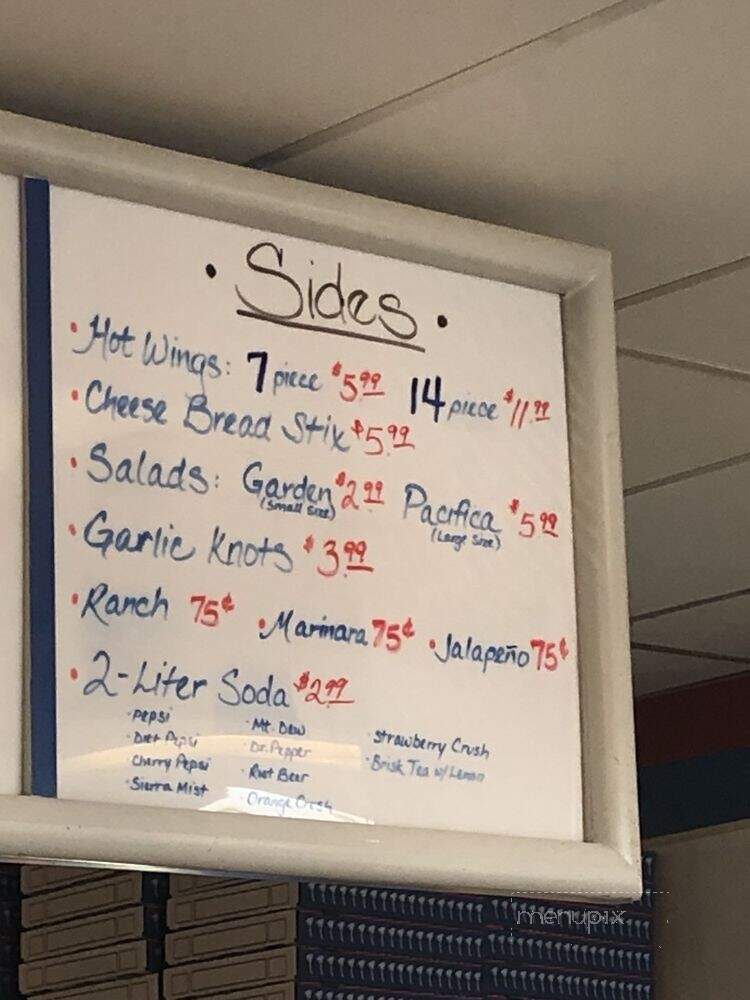 · Sides ·
· Hot Wings: 7 piece $5.99 14 piece $11.99
· Cheese Bread Stix $5.99
· Salads: Garden $2.99 Pacifica $5.99
(Small Size) (Large Size)
· Garlic Knots $3.99
· Ranch 75¢ · Marinara 75¢ · Jalapeño 75¢
· 2-Liter Soda $2.99
· Pepsi · Mt. Dew · Strawberry Crush
· Diet Pepsi · Dr. Pepper · Brisk Tea w/ Lemon
· Cherry Pepsi · Root Beer
· Sierra Mist · Orange Crush
menupix